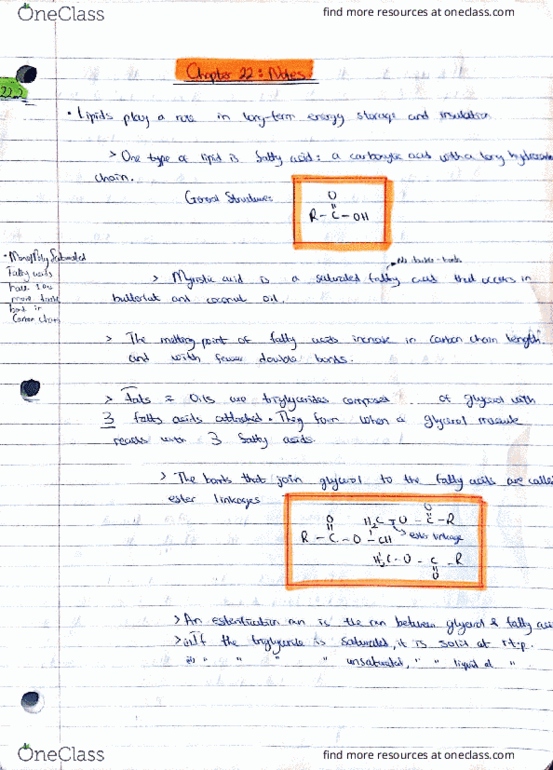 OneClass
find more resources at oneclass.com
Chapter 22: Notes
22.2
• Lipids play a role in long-term energy storage and insulation
> One type of lipid is fatty acid: a carboxylic acid with a long
chain.
General Structure:
O
R - C - OH
No double-bonds
• Mono/Poly Saturated
Fatty acids
have 1 or
more double
bond in
Carbon chain
> Myristic acid is a saturated fatty acid that occurs in
butterfat and coconut oil.
> The melting point of fatty acids increase in carbon chain length
and with fewer double bonds.
> Fats = Oils are triglycerides composed of glycerol with
3 fatty acids attached. They form when a glycerol molecule
reacts with 3 fatty acids.
> The bonds that join glycerol to the fatty acids are called
ester linkages
O
H₂C - O - C - R
O
R - C - O - CH
ester linkage
H₂C - O - C - R
O
> An esterification rxn is the rxn between glycerol & fatty
> i) If the triglyceride is saturated, it is solid at r.t.p.
ii) " " " " unsaturated, " " liquid at "
OneClass
find more resources at oneclass.com